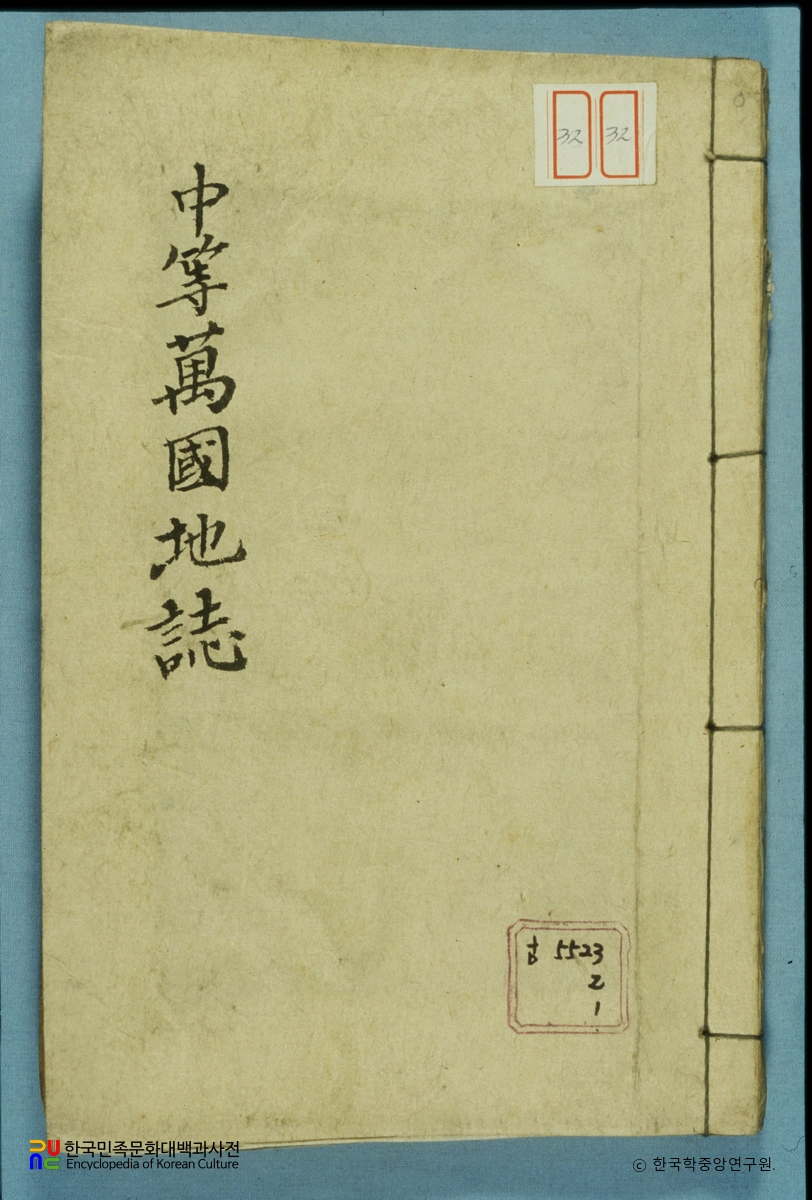 中等萬國地誌
32 32
古 5523
2
1
한국민족문화대백과사전
Encyclopedia of Korean Culture
© 한국학중앙연구원.